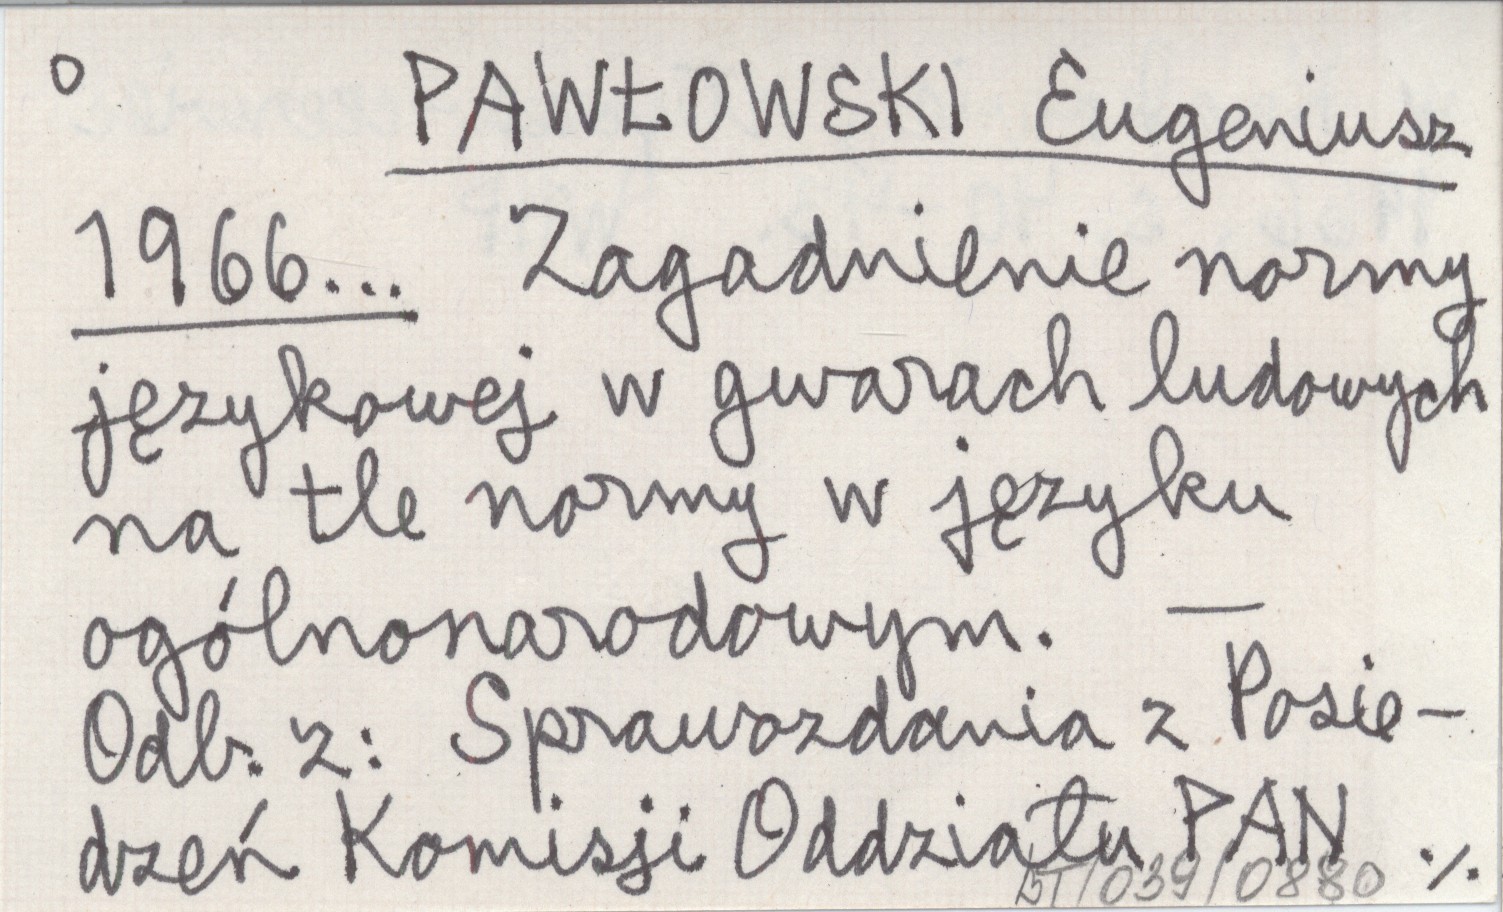 o PAWŁOWSKI Eugeniusz
1966... Zagadnienie normy
językowej w gwarach ludowych
na tle normy w języku
ogólnonarodowym. —
Odb. z: Sprawozdania z Posie-
dzeń Komisji Oddziału PAN ./.
BJ/039/0880